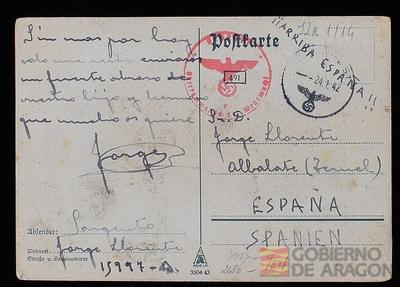 Sin mas por hoy
solo me resta enviaros
un fuerte abrazo de
vuestro hijo y hermano
que mucho os quiere
Jorge
Absender: Sargento
Wohnort: Jorge Llorente
Straße u. Hausnummer
15997-A.
Postkarte
¡¡ARRIBA ESPAÑA!!
491
24.1.42
S.D.
Jorge Llorente
Albalate (Teruel)
ESPAÑA
SPANIEN
3504 43
GOBIERNO
DE ARAGON